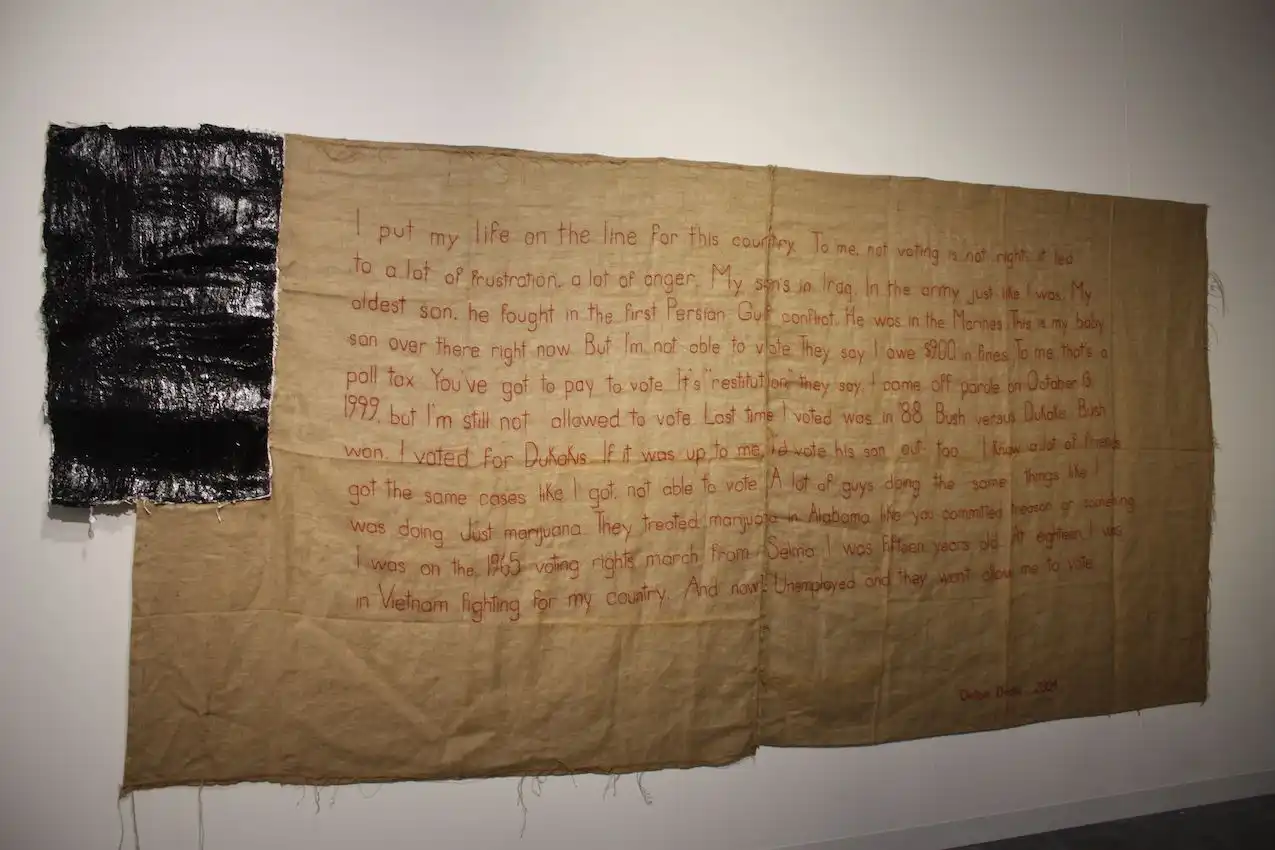 I put my life on the line for this country. To me, not voting is not right; it led
to a lot of frustration, a lot of anger. My son's in Iraq. In the army just like I was. My
oldest son, he fought in the first Persian Gulf conflict. He was in the Marines. This is my baby
son over there right now. But I'm not able to vote. They say I owe $900 in fines. To me that's a
poll tax. You've got to pay to vote. It's "restitution," they say. I came off parole on October 13,
1999, but I'm still not allowed to vote. Last time I voted was in '88. Bush versus Dukakis. Bush
won. I voted for Dukakis. If it was up to me, I'd vote his son out too. I know a lot of friends
got the same cases like I got, not able to vote. A lot of guys doing the same things like I
was doing. Just marijuana. They treated marijuana in Alabama like you committed treason or something
I was on the 1965 voting rights march from Selma. I was fifteen years old. At eighteen, I was
in Vietnam fighting for my country. And now? Unemployed and they won't allow me to vote.
2004